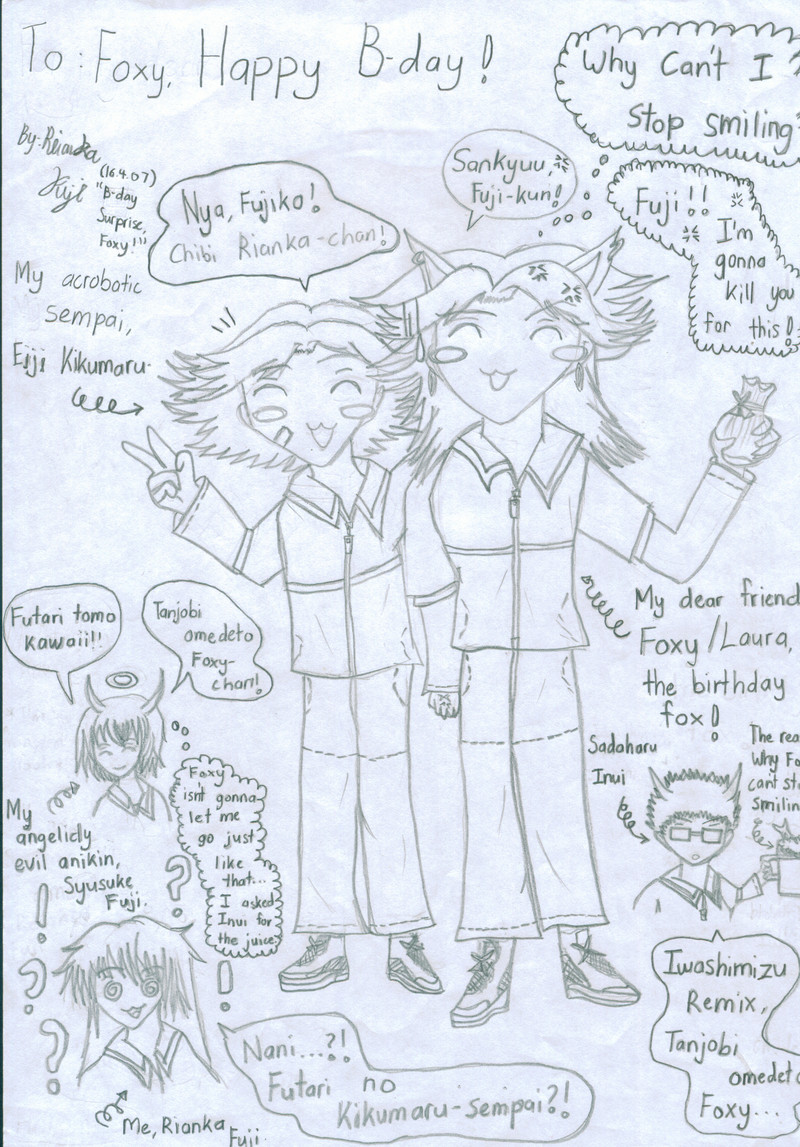 To: Foxy, Happy B-day!
Why Can't I
stop smiling?
By: Rianka
Fuji
(16.4.07)
"B-day
Surprise,
Foxy!!!
Sankyuu,
Fuji-kun!
Nya, Fujiko!
Chibi Rianka-chan!
Fuji!!
I'm
gonna
kill you
for this!
My acrobatic
sempai,
Eiji Kikumaru.
Futari tomo
kawaii!!
Tanjobi
omedeto
Foxy-
chan!
My dear friend
Foxy/Laura,
the birthday
fox!
Sadaharu
Inui
The rea
Why Fo
can't sto
smilin
Foxy
isn't gonna
let me
go just
like
that...
I asked
Inui for
the juice.
My
angelicly
evil anikin,
Syusuke
Fuji.
Iwashimizu
Remix,
Tanjobi
omedeto
Foxy...
Nani...?!
Futari no
Kikumaru-sempai?!
Me, Rianka
Fuji